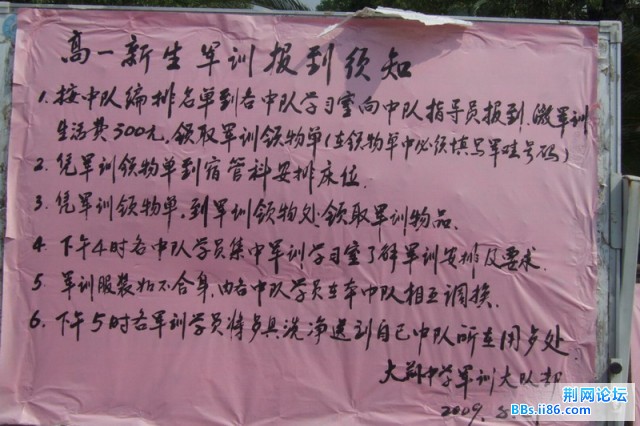 高一新生军训报到须知
1. 按中队编排名单到各中队学习室向中队指导员报到.缴军训
生活费300元,领取军训领物单(在领物单中必须填写军鞋号码)
2. 凭军训领物单到宿管科安排床位.
3. 凭军训领物单,到军训领物处领取军训物品.
4. 下午4时各中队学员集中军训学习室了解军训安排及要求.
5. 军训服装如不合身,由各中队学员在本中队相互调换.
6. 下午5时各军训学员将 具洗净送到自己中队所在用 处.
大荆中学军训大队部
2009.8
荆网论坛
BBs.ii86.com